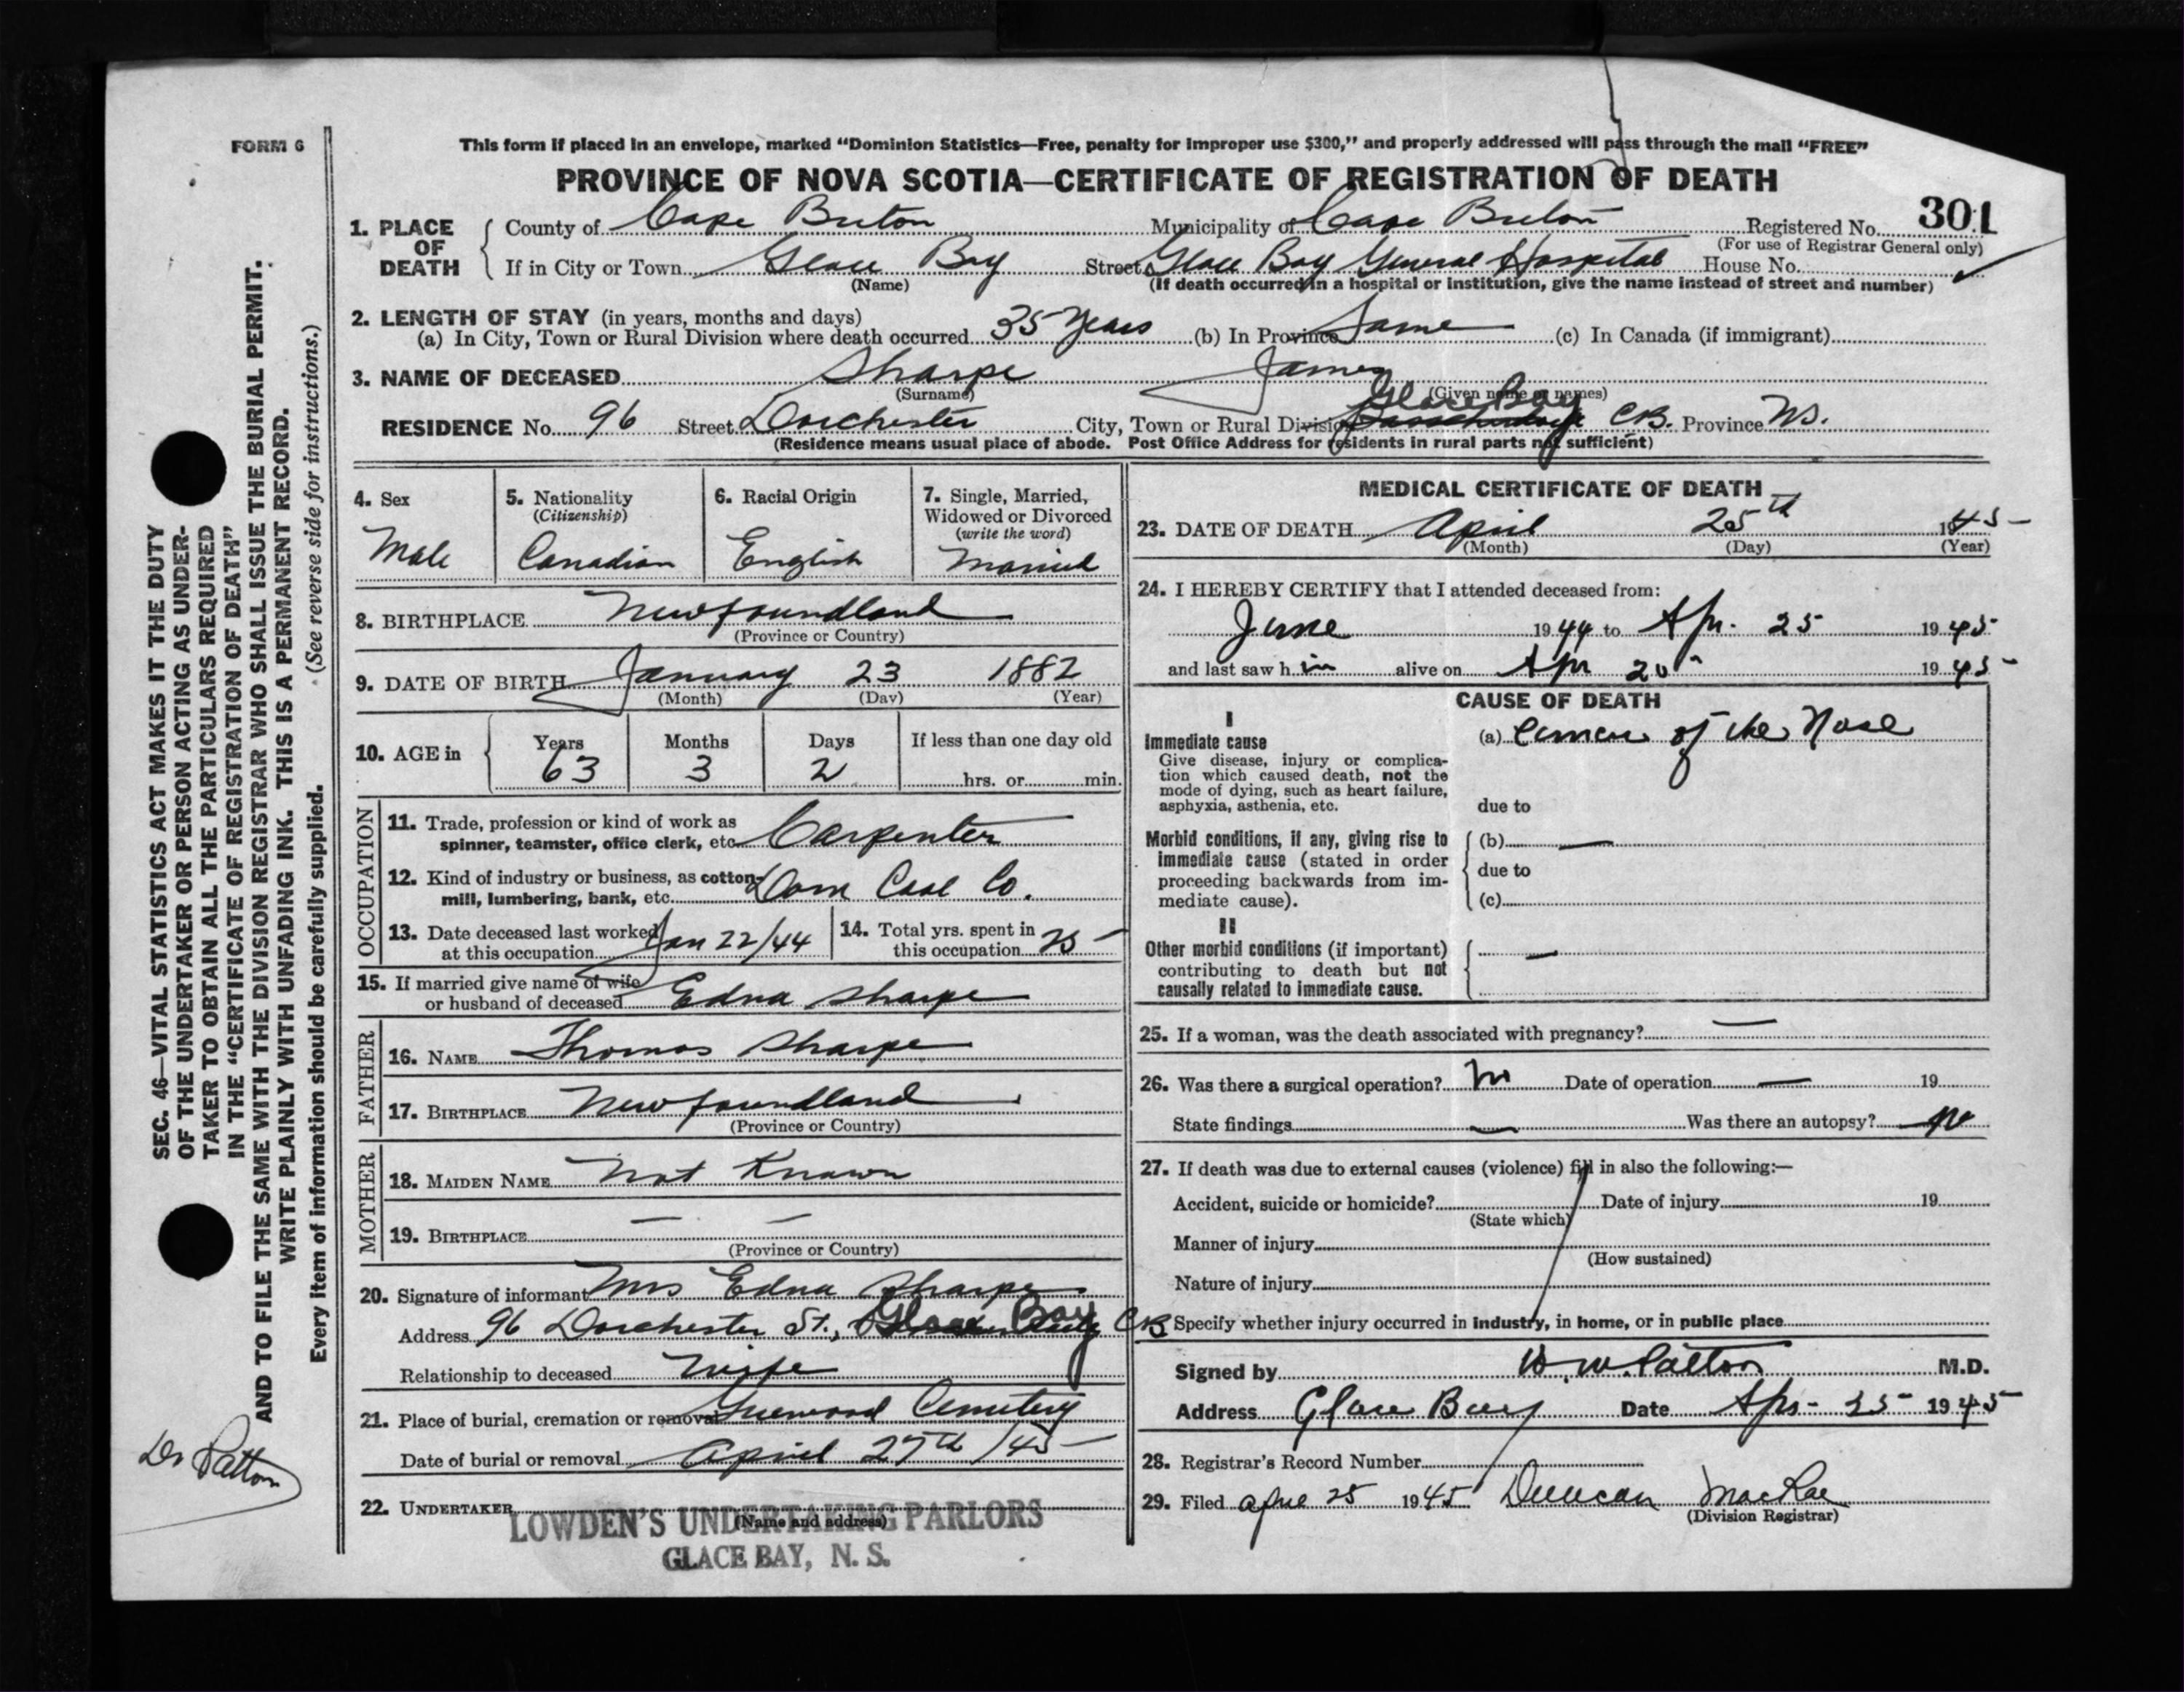 FORM 6
This form if placed in an envelope, marked "Dominion Statistics—Free, penalty for improper use $300," and properly addressed will pass through the mail "FREE"
PROVINCE OF NOVA SCOTIA—CERTIFICATE OF REGISTRATION OF DEATH
1. PLACE OF DEATH
County of Cape Breton Municipality of Cape Breton Registered No. 301
(For use of Registrar General only)
If in City or Town Glace Bay Street Glace Bay General Hospital House No.
(Name) (If death occurred in a hospital or institution, give the name instead of street and number)
2. LENGTH OF STAY (in years, months and days)
(a) In City, Town or Rural Division where death occurred 35 Years (b) In Province Same (c) In Canada (if immigrant)
3. NAME OF DECEASED Sharpe James
(Surname) (Given name or names)
RESIDENCE No. 96 Street Dorchester City, Town or Rural Division Glace Bay CB. Province NS.
(Residence means usual place of abode. Post Office Address for residents in rural parts not sufficient)
4. Sex
Male
5. Nationality
(Citizenship)
Canadian
6. Racial Origin
English
7. Single, Married,
Widowed or Divorced
(write the word)
Married
8. BIRTHPLACE Newfoundland
(Province or Country)
9. DATE OF BIRTH January 23 1882
(Month) (Day) (Year)
10. AGE in
Years Months Days If less than one day old
63 3 2 hrs. or min.
OCCUPATION
11. Trade, profession or kind of work as
spinner, teamster, office clerk, etc. Carpenter
12. Kind of industry or business, as cotton-
mill, lumbering, bank, etc. Dom Coal Co.
13. Date deceased last worked
at this occupation Jan 22/44
14. Total yrs. spent in
this occupation 25
15. If married give name of wife
or husband of deceased Edna Sharpe
FATHER
16. NAME Thomas Sharpe
17. BIRTHPLACE Newfoundland
(Province or Country)
MOTHER
18. MAIDEN NAME Not Known
19. BIRTHPLACE — —
(Province or Country)
20. Signature of informant Mrs Edna Sharpe
Address 96 Dorchester St., Glace Bay CB
Relationship to deceased Wife
21. Place of burial, cremation or removal Greenwood Cemetery
Date of burial or removal April 27th /45
22. UNDERTAKER
(Name and address)
LOWDEN'S UNDERTAKING PARLORS
GLACE BAY, N. S.
MEDICAL CERTIFICATE OF DEATH
23. DATE OF DEATH April 25th 1945
(Month) (Day) (Year)
24. I HEREBY CERTIFY that I attended deceased from:
June 1944 to Apr. 25 1945
and last saw h im alive on Apr 20 1945
CAUSE OF DEATH
I
Immediate cause
Give disease, injury or complica-
tion which caused death, not the
mode of dying, such as heart failure,
asphyxia, asthenia, etc.
(a) Cancer of the Nose
due to
Morbid conditions, if any, giving rise to
immediate cause (stated in order
proceeding backwards from im-
mediate cause).
(b) —
due to
(c)
II
Other morbid conditions (if important)
contributing to death but not
causally related to immediate cause.
—
25. If a woman, was the death associated with pregnancy? —
26. Was there a surgical operation? No Date of operation — 19
State findings — Was there an autopsy? No
27. If death was due to external causes (violence) fill in also the following:—
Accident, suicide or homicide? Date of injury 19
(State which)
Manner of injury
(How sustained)
Nature of injury
Specify whether injury occurred in industry, in home, or in public place
Signed by W. W. Patton M.D.
Address Glace Bay Date Apr- 25 1945
28. Registrar's Record Number
29. Filed April 25 1945 Duncan MacRae
(Division Registrar)
SEC. 46—VITAL STATISTICS ACT MAKES IT THE DUTY
OF THE UNDERTAKER OR PERSON ACTING AS UNDER-
TAKER TO OBTAIN ALL THE PARTICULARS REQUIRED
IN THE "CERTIFICATE OF REGISTRATION OF DEATH"
AND TO FILE THE SAME WITH THE DIVISION REGISTRAR WHO SHALL ISSUE THE BURIAL PERMIT.
WRITE PLAINLY WITH UNFADING INK. THIS IS A PERMANENT RECORD.
Every item of information should be carefully supplied. (See reverse side for instructions.)
Dr Patton